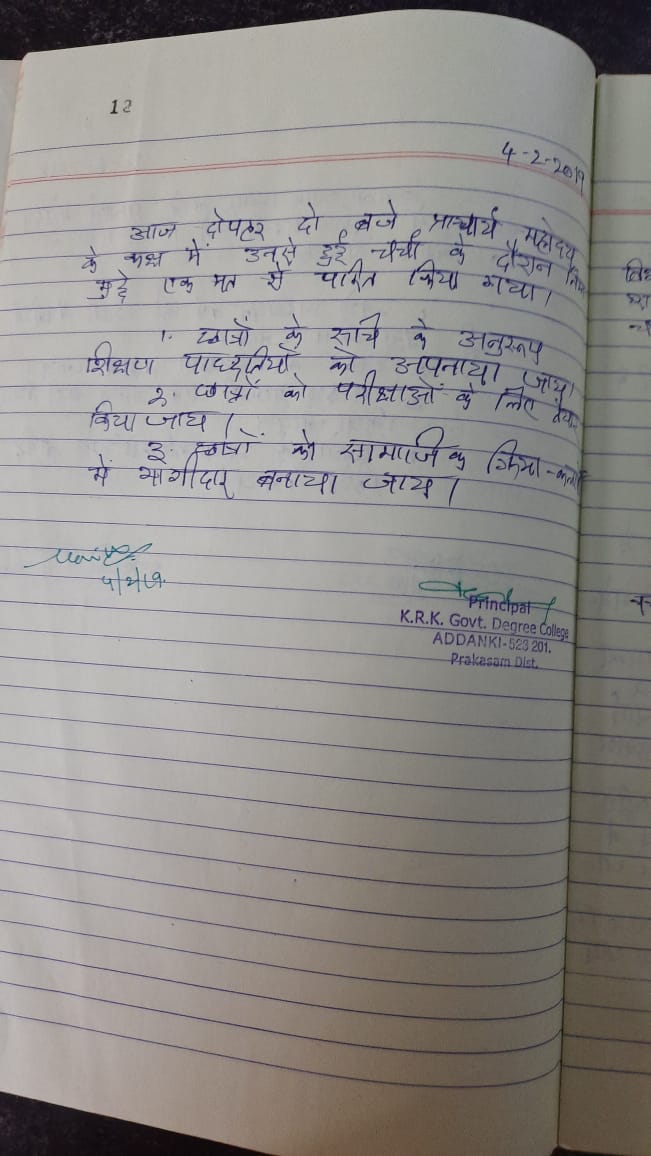 12
4-2-2019
आज दोपहर दो बजे प्राचार्य महोदय
के कक्ष में उनसे हुई चर्चा के दौरान निम्न
मुद्दे एक मत से पारित किया गया।
1. छात्रों के रुचि के अनुरूप
शिक्षण पाध्दतियों को अपनाया जाय।
2. छात्रों को परीक्षाओं के लिए तैयार
किया जाय।
3 छात्रों को सामाजिक क्रिया-
में भागीदार बनाया जाय।
4/2/19.
Principal
K.R.K. Govt. Degree College
ADDANKI-523 201.
Prakasam Dist.